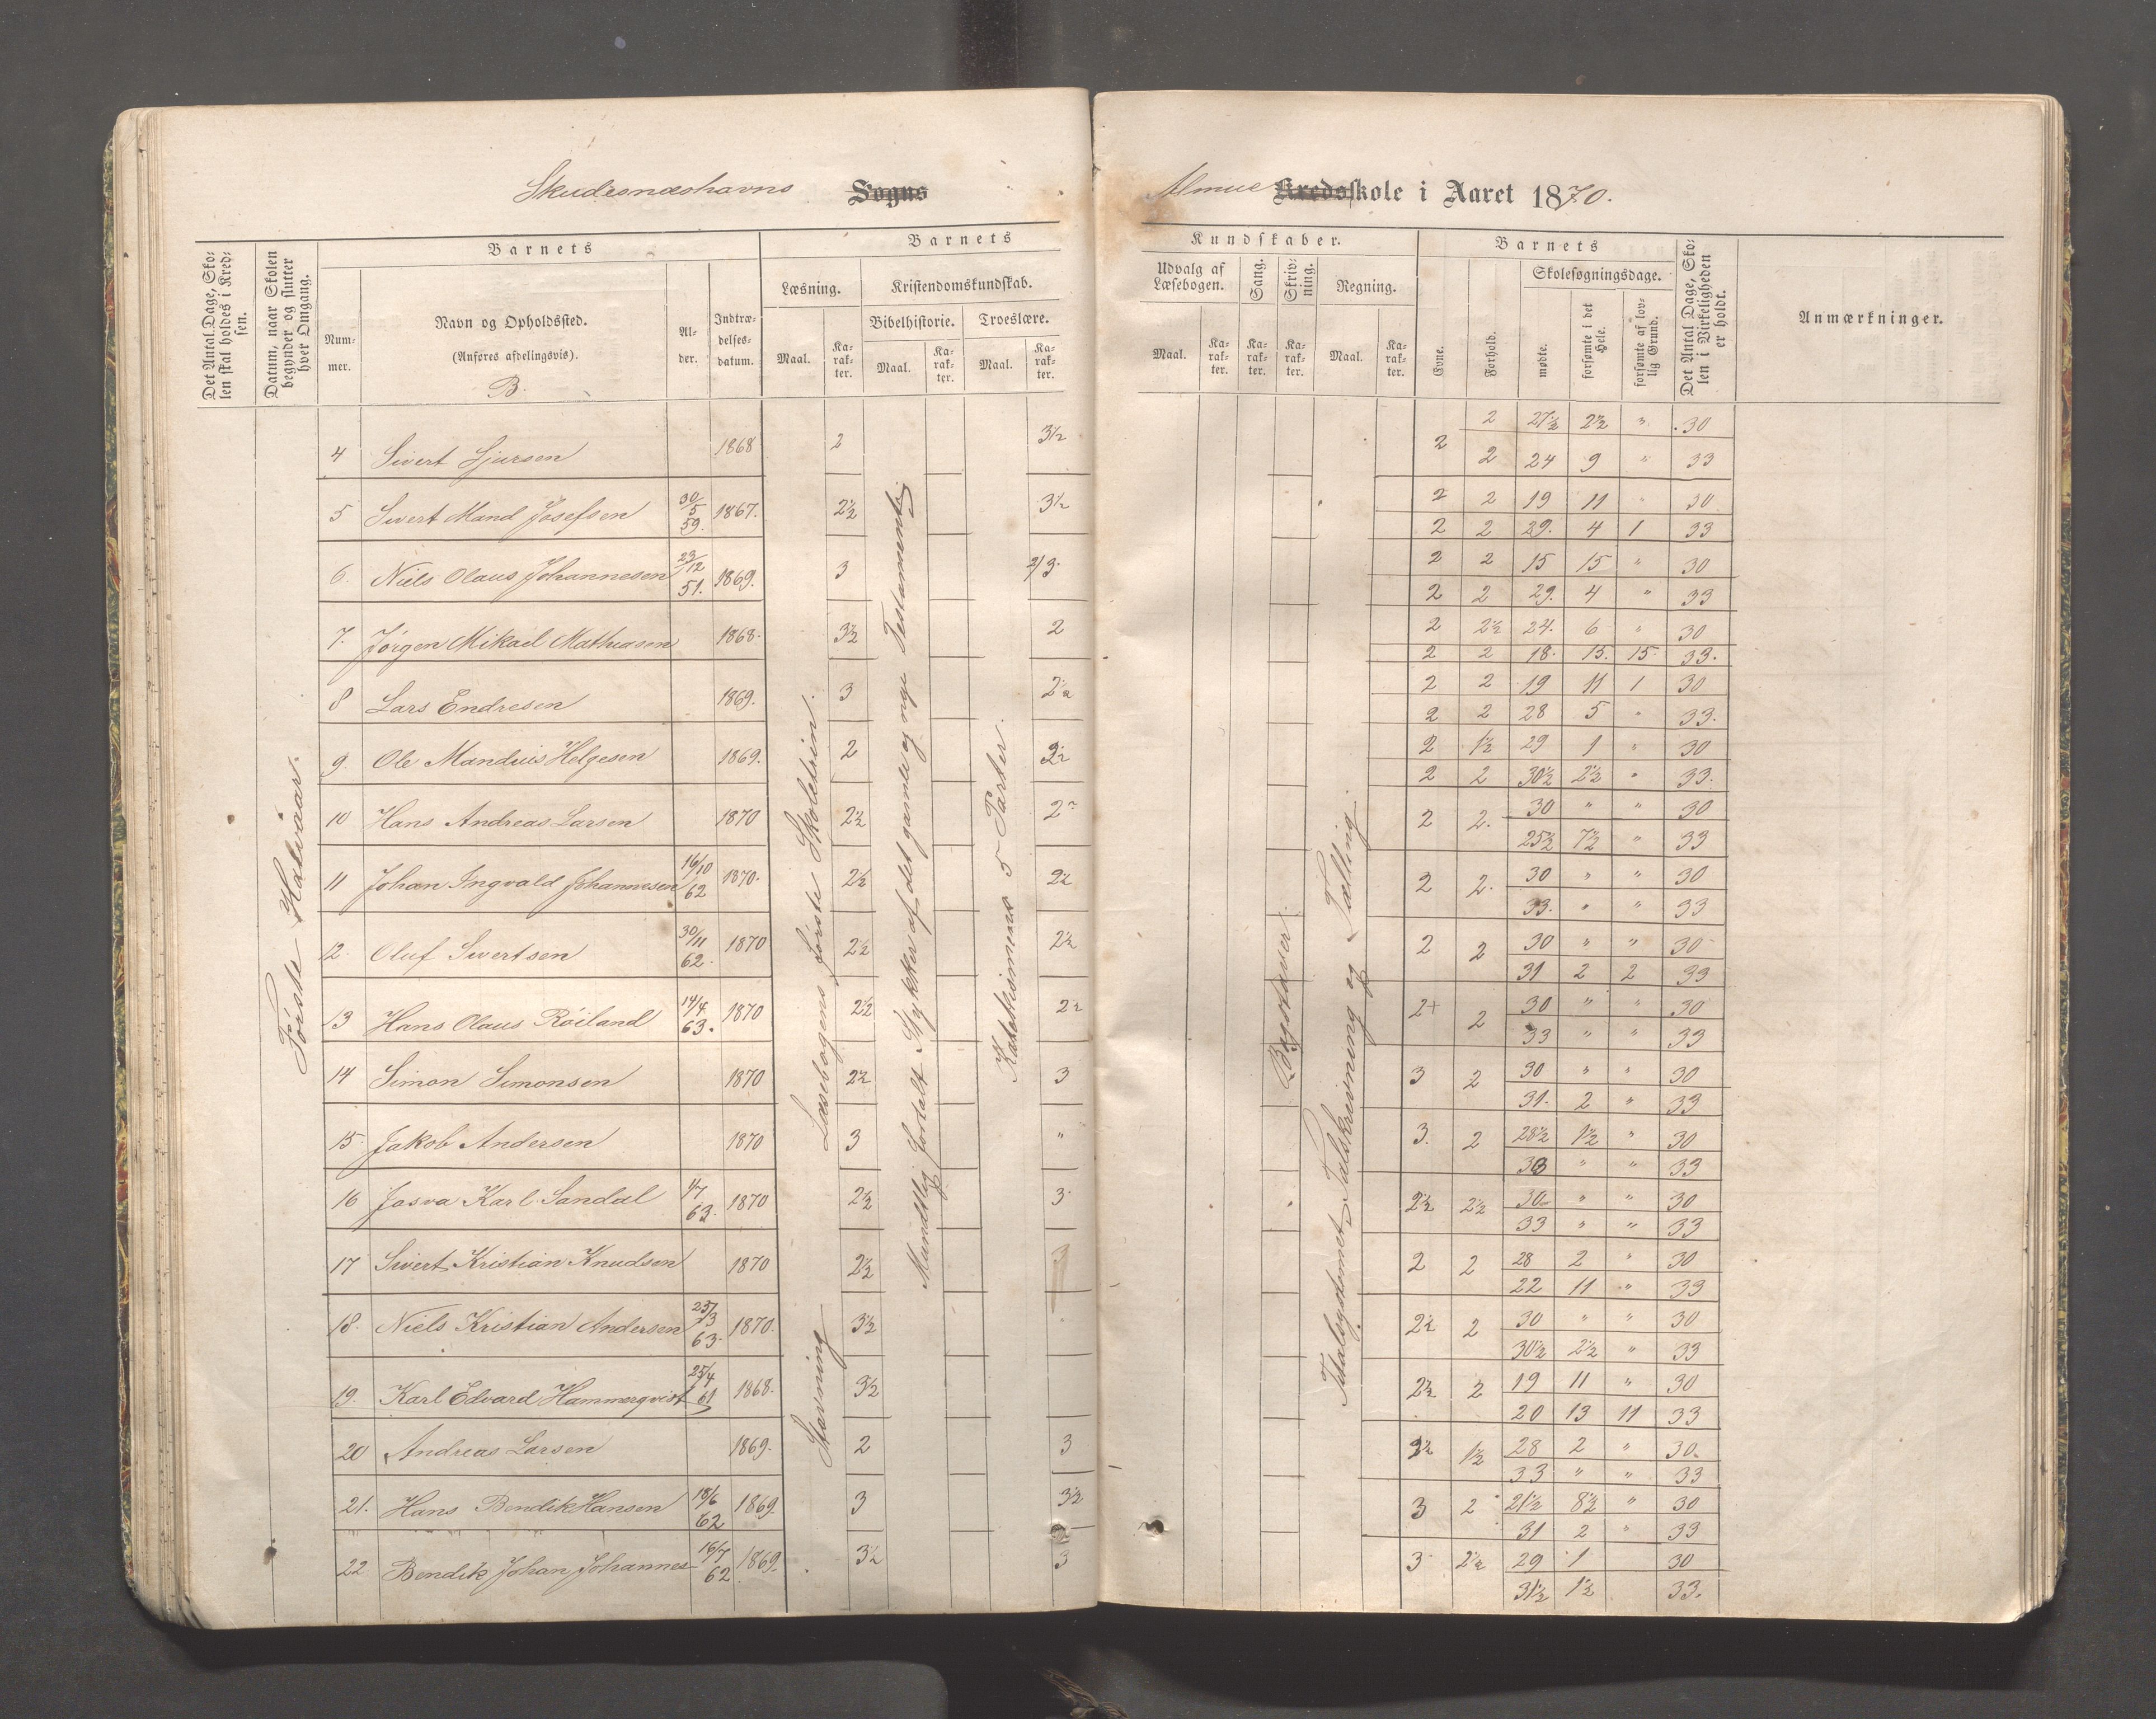 Skudesnæshavns Sogns Almue Kredsskole i Aaret 1870.
Det Antal Dage, Skolen skal holdes i Kredsen.
Datum, naar Skolen begynder og slutter hver Omgang.
Barnets
Nummer.
Navn og Opholdssted.
(Anføres afdelingsvis).
B.
Alder.
Indtrædelsesdatum.
Barnets
Læsning.
Maal.
Karakter.
Kristendomskundskab.
Bibelhistorie.
Maal.
Karakter.
Troeslære.
Maal.
Karakter.
Kundskaber.
Udvalg af Læsebogen.
Maal.
Karakter.
Sang.
Karakter.
Skrivning.
Karakter.
Regning.
Maal.
Karakter.
Barnets
Evne.
Forhold.
Skolesøgningsdage.
mødte.
forsømte i det Hele.
forsømte af lovlig Grund.
Det Antal Dage, Skolen i Virkeligheden er holdt.
Anmærkninger.
Første Halvaar.
Læsebogens første Skoletrin.
Stavning
Mundtlig fortalt Stykker af det gamle og nye Testamente
Katekismens 5 Parter.
Bogstaver.
Titalsystemet, Talskrivning og Tælling
4 Sivert Sjursen 1868 2 3½ 2 2 27½ 2½ " 30
2 24 9 " 33
5 Sivert Mand Josefsen 30/5 59. 1867. 2½ 3½ 2 2 19 11 " 30
2 2 29. 4 1 33
6. Niels Olaus Johannesen 23/12 51. 1869. 3 2/3. 2 2 15 15 " 30
2 2 29. 4 " 33
7. Jørgen Mikael Mathiasen 1868. 3½ 2 2 2½ 24. 6 " 30
2 2 18. 15. 15. 33.
8 Lars Endresen 1869. 3 2½ 2 2 19 11 1 30
2 2 28 5 " 33.
9. Ole Mandius Helgesen 1869. 2 2½ 2 1½ 29 1 " 30
2 2 30½ 2½ " 33.
10 Hans Andreas Larsen 1870 2½ 2 2 2. 30 " " 30
25½ 7½ " 33
11 Johan Ingvald Johannesen 16/10 62 1870. 2½ 2½ 2 2. 30 " " 30
33. " " 33
12. Oluf Sivertsen 30/11 62. 1870 2½ 2½ 2 2 30 " " 30
31 2 2 33
13 Hans Olaus Röiland 14/4 63. 1870 2½ 2½ 2+ 2 30 " " 30
33 " " 33
14 Simon Simonsen 1870 2½ 3 3 2 30 " " 30
31. 2 " 33
15. Jakob Andersen 1870 3 " 3. 2 28½ 1½ " 30
33 " " 33
16 Josva Karl Sandal 1/7 63. 1870 2½ 3 2½ 2½ 30 " " 30
33 " " 33
17 Sivert Kristian Knudsen 1870 2½ 3 2 2 28 2 " 30
22 11 " 33
18. Niels Kristian Andersen 25/3 63. 1870. 3½ 2½ 2 30 " " 30
30½ 2½ " 33
19. Karl Edvard Hammerqvist 25/4 61 1868. 3½ 2½ 2 19 11 " 30
20 13 11 33
20 Andreas Larsen 1869. 2 3 1½ 28 2 " 30.
33 " " 33
21. Hans Bendik Hansen 18/6 62 1869. 3 3½ 3 2 21½ 8½ " 30
31 2 " 33
22 Bendik Johan Johannes 16/7 62 1869. 3½ 3 3 2½ 29 1 30
31½ 1½ 33.